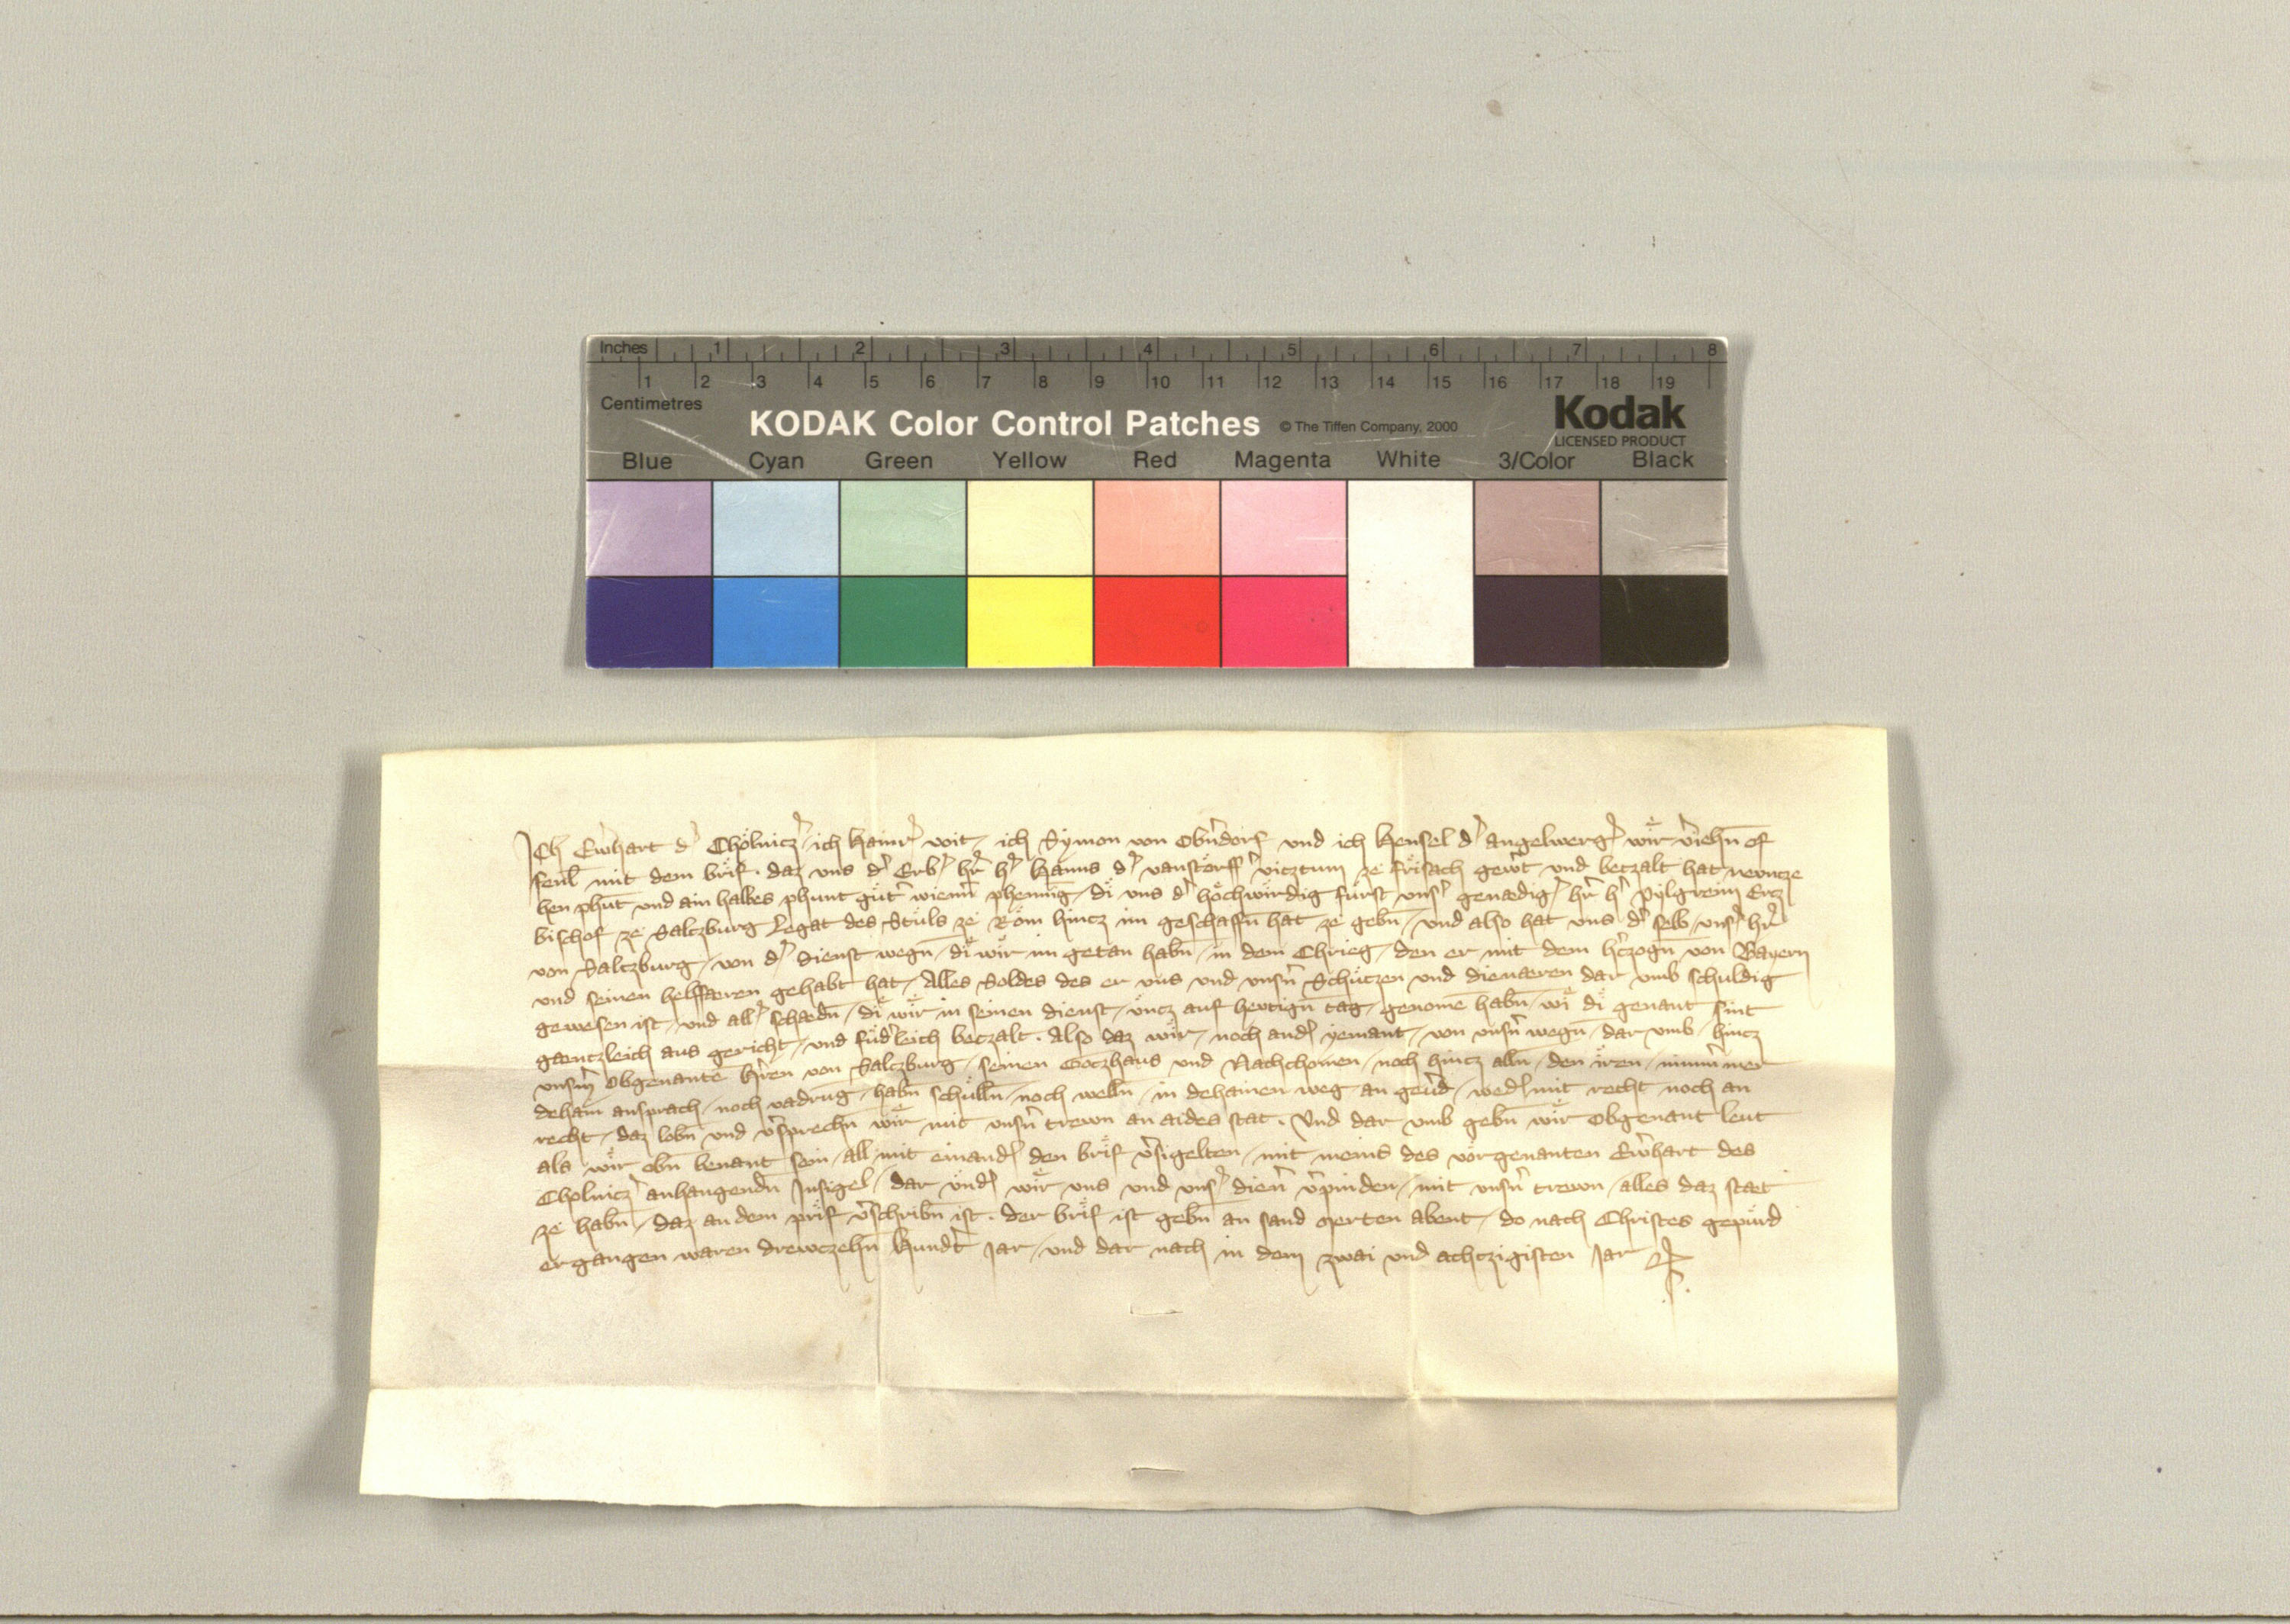 Inches 1 2 3 4 5 6 7 8
1 2 3 4 5 6 7 8 9 10 11 12 13 14 15 16 17 18 19
Centimetres
KODAK Color Control Patches © The Tiffen Company, 2000 Kodak
LICENSED PRODUCT
Blue Cyan Green Yellow Red Magenta White 3/Color Black
Ich Ew̉hart d̉ Chölnicz̉ / ich Hainr̉ voit / ich Symon von Obn̉dorf und ich Hensel d̉ angelwerg̉ wir v̉iehn̄ of
fenl̄ mit dem brif . daz vns d̉ Erb̉ hr̉ h̉ Hanns d̉ vanstorff̉ vicztum ze frisach gew̉t und beczalt hat newncze
hen phūt und ain halbes phunt gut̉ wienn̉ phennig / di uns d̉ hochwirdig furst uns̉ genædig̉ hr̉ h̉ Pylgreim Ercz
bischof ze Salczburg Legat des Stuls ze Rom hincz im geschaffn̄ hat ze gebn̄ / und also hat uns d̉ selb / uns̉ hr̉
von Salczburg / von d̉ dienst wegn̄ / di wir im getan habn̄ / in dem Chrieg / den er mit dem hc̉zogn̄ von Bayern
und seinen helffæren gehabt hat / Alles Soldes des er uns und unsn̉ Schuczen und dienæren dar umb schuldig
gewesen ist / und all̉ schædn̄ / di wir in seinen dienst / uncz auf hewtign̄ tag / genomē habn̄ / wi di genant sint
gæntzleich aus gericht / und fud̉leich beczalt . Also daz wir / noch and̉ yemant / von unsn̉ wegn̄ / dar umb / hincz
unsm̉ obgenantē hr̉en von Salczburg / seinen Goczhaus und Nachchomen / noch hincz alln̄ / den iren / nimm̉mer
dehain ansprach / noch vadrūg / habn̄ schulln̄ / noch welln̄ / in dehainen weg an gev̉d / wed̉ mit recht noch an
recht / daz lobn̄ und v̉sprechn̄ wir mit unsn̉ trewn an aides stat . Und dar umb gebn̄ wir obgenant leut
als wir obn̄ benant sein / all mit einand̉ den brif v̉sigelten / mit meins des vorgenanten Ew̉hart des
Cholnicz̉ anhangendn̉ Insigel / dar und̉ wir uns und uns̉ dien̉ v̉pinden / mit unsn̉ trewn / alles daz stæt
ze habn̄ / daz an dem prif v̉schribn̄ ist . der brif ist gebn̄ an sand Merten abent / do nach Christes gepurd
ergangen waren drewczehn̄ Hundt̉ Jar / und dar nach in dem zwai und achtzigisten Jar